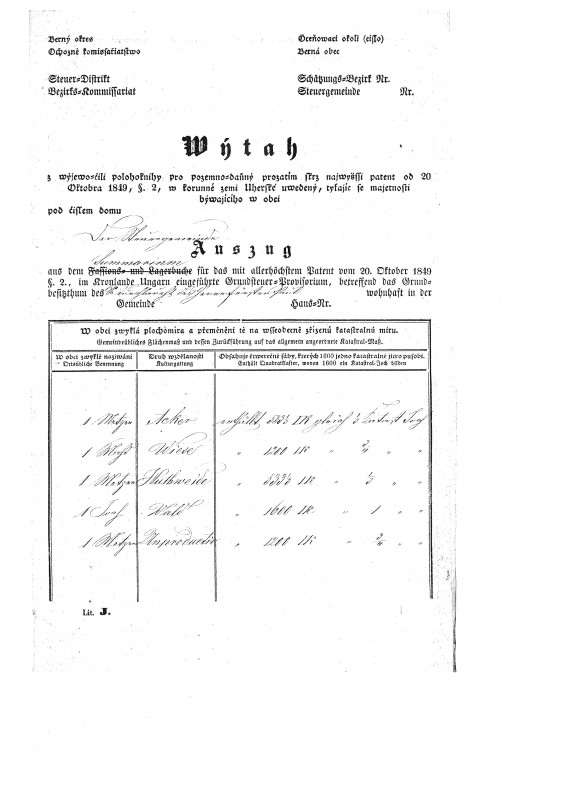 Berný okres
Ochozné komissariatstwo
Oceňowací okolí (cislo)
Berná obec
Steuer-Distrikt
Bezirks-Kommissariat
Schätzungs-Bezirk Nr.
Steuergemeinde Nr.
Wýtah
z wýjewo-čili polohoknihy pro pozemno-daňný prozatím skrz najwyšší patent od 20
Oktobra 1849, §. 2, w korunné zemi Uherské uwedený, tykajíc se majetnosti
býwajícího w obci
pod číslem domu
Der Steuergemeinde
Auszug
Summarium
aus dem Fassions- und Lagerbuche für das mit allerhöchstem Patent vom 20. Oktober 1849
§. 2., im Kronlande Ungarn eingeführte Grundsteuer-Provisorium, betreffend das Grund-
besitzthum des wohnhaft in der
Gemeinde Haus-Nr.
W obci zwyklá plochomíra a přeměnění té na wsseobecně zřízenú katastralnú míru.
Gemeindeübliches Flächenmaß und dessen Zurückführung auf das allgemein angeordnete Katastral-Maß.
W obci zwyklé nazwání
Ortsübliche Benennung
Druh wzdělanosti
Kulturgattung
Obsahuje čtwerečné sáhy, kterých 1600 jedno katastralné jitro působí.
Enthält Quadratklafter, wovon 1600 ein Katastral-Joch bilden
1 Metzen Acker enthällt 533⅓ □K gleich ⅓ Katast Joch
1 Wiese " 1200 □K " ¾ " "
1 Metzen Huthweide " 533⅓ □K " ⅓ " "
1 Joch Wald " 1600 □K. " 1 " "
1 Metzen Unproductiv " 1200 □K " ¾ " "
Lit. J.